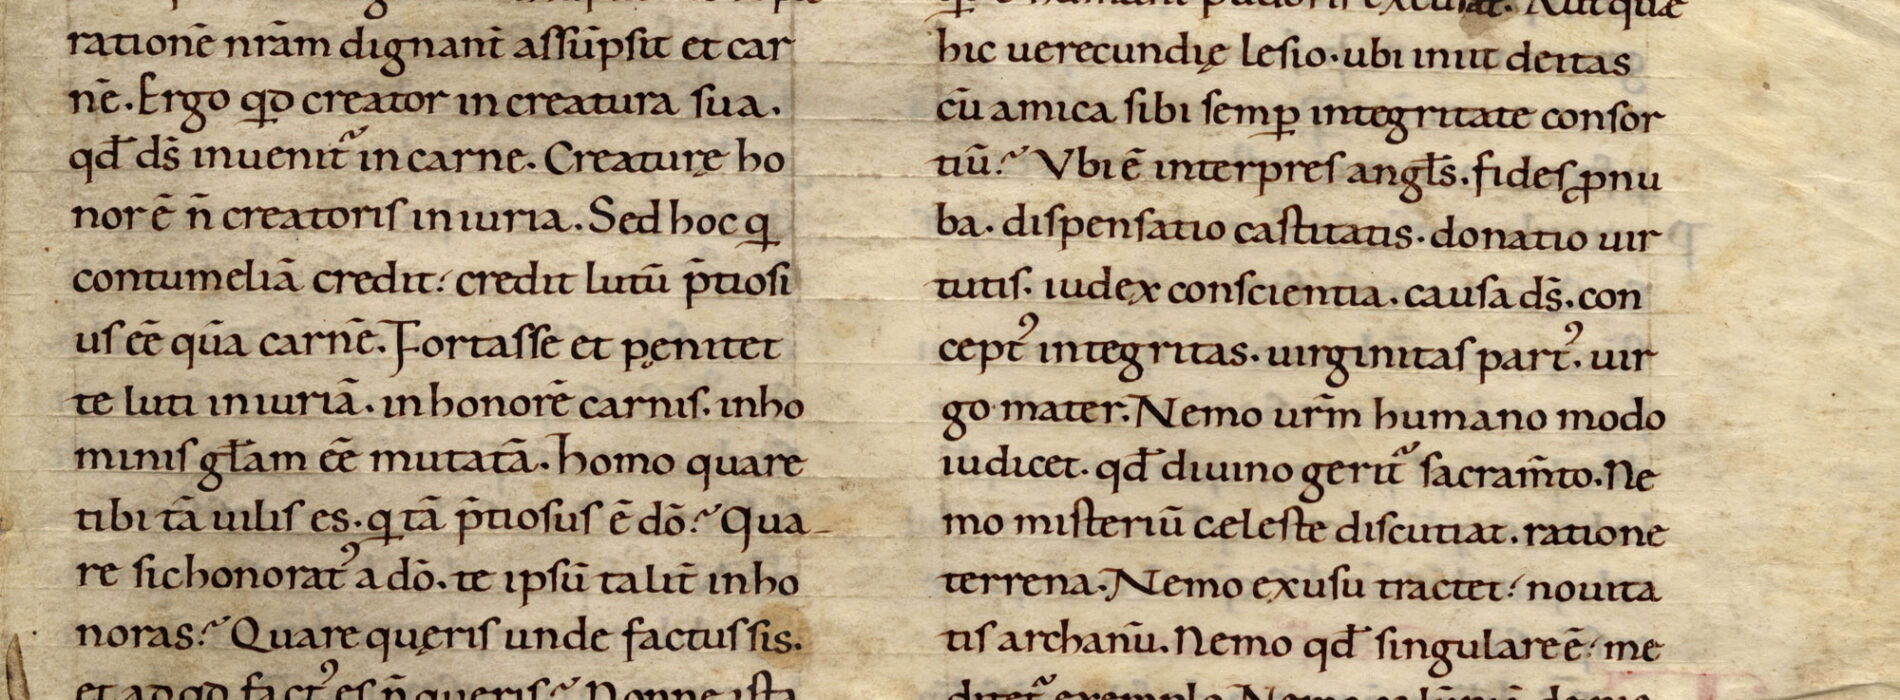 rationē nr̄am dignant̄ assūpsit et car
nē. Ergo qđ creator in creatura sua.
qđ ds̄ inuenit᷑ in carne. Creaturę ho
nor ē n̄ creatoris iniuria. Sed hoc q̲
contumeliā credit: credit lutū p̄tiosi
us eē̄ qūa carnē. Fortasse et pęnitet
te luti iniuriā. in honorē carnis. in ho
minis gl̄am eē̄ mutatā. homo quare
tibi tā uilis es. q̲ tā p̄tiosus ē dō? Qua
re sic honorat᾽ a dō. te ipsū talit̄ inho
noras? Quare queris unde factus sis.
hic uerecundię lesio. ubi init deitas
cū amica sibi semꝑ integritate consor
tiū? Vbi ē interpres angl̄s. fides ꝓnu
ba. dispensatio castitatis. donatio uir
tutis. iudex conscientia. causa ds̄. con
cept᾽ integritas. uirginitas part᾽. uir
go mater. Nemo ur̄m humano modo
iudicet. qđ diuino gerit᷑ sacram̄to. Ne
mo misteriū cęleste discutiat. ratione
terrena. Nemo ex usu tractet: nouita
tis archanū. Nemo qđ singulare ē: me